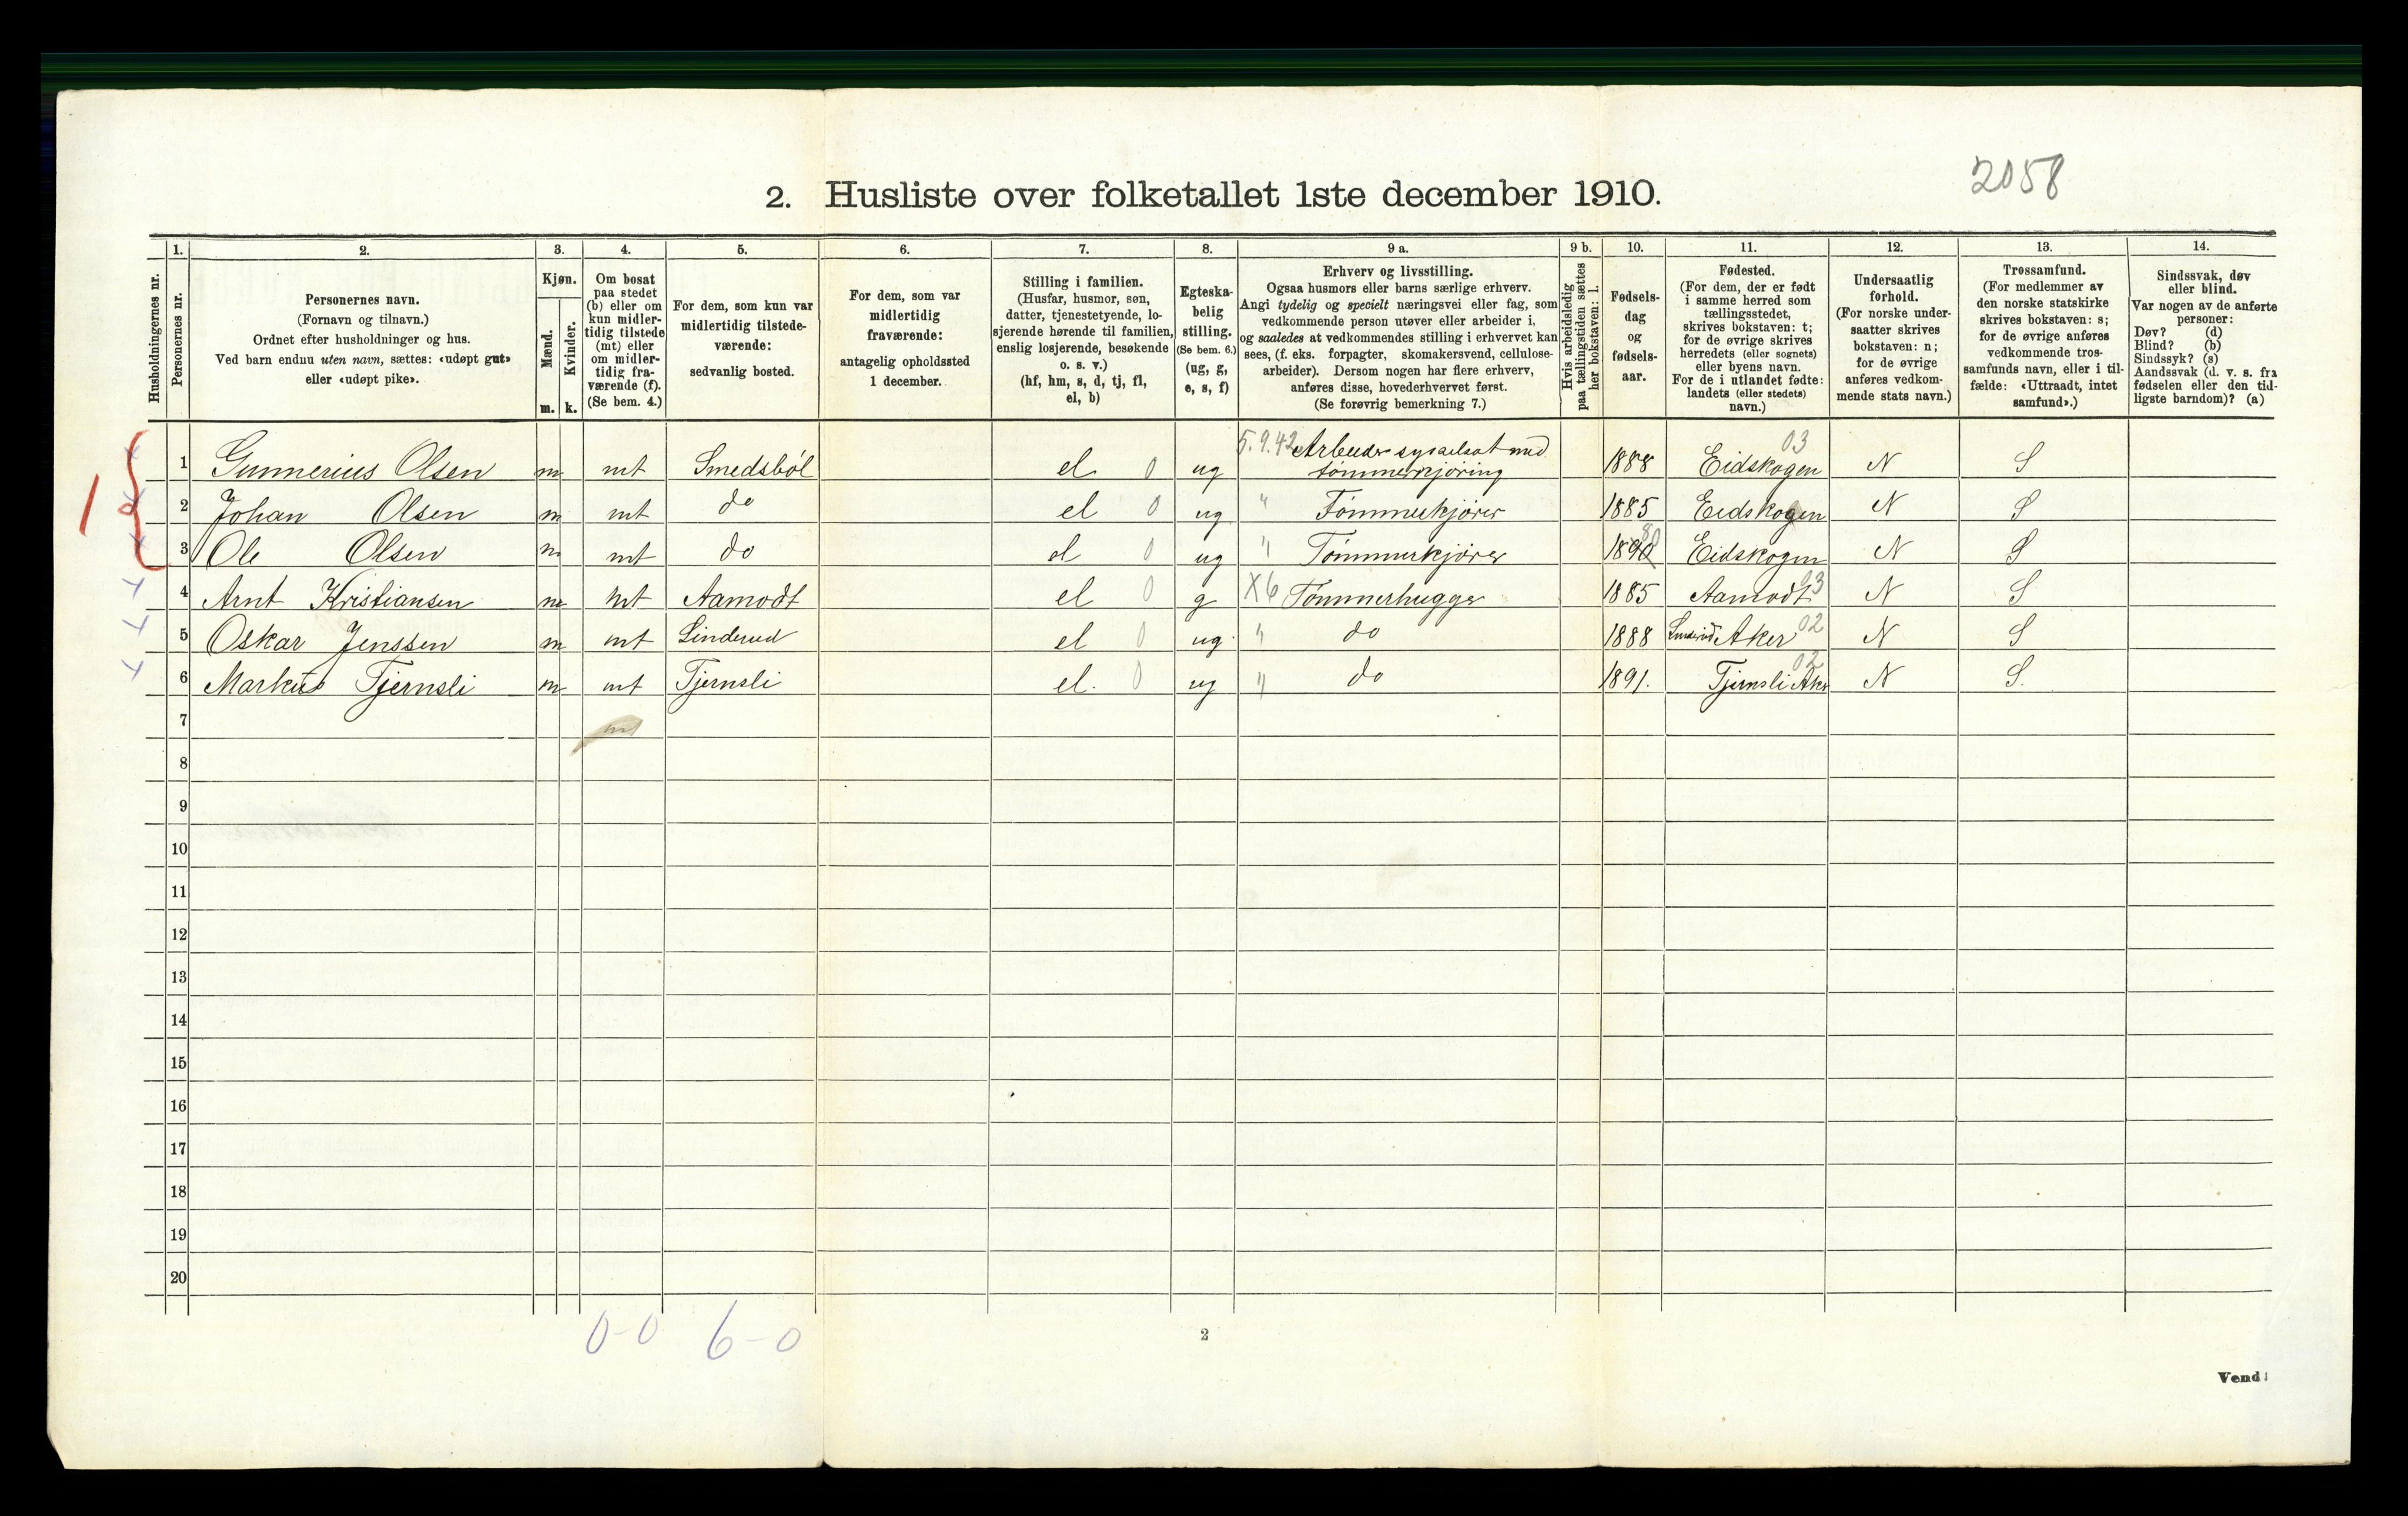 2058
2. Husliste over folketallet 1ste december 1910.
1. 2. 3. 4. 5. 6. 7. 8. 9 a. 9 b. 10. 11. 12. 13. 14.
Husholdningernes nr.
Personernes nr.
Personernes navn.
(Fornavn og tilnavn.)
Ordnet efter husholdninger og hus.
Ved barn endnu uten navn, sættes: «udøpt gut»
eller «udøpt pike».
Kjøn.
Mænd.
Kvinder.
m. k.
Om bosat
paa stedet
(b) eller om
kun midler-
tidig tilstede
(mt) eller
om midler-
tidig fra-
værende (f).
(Se bem. 4.)
For dem, som kun var
midlertidig tilstede-
værende:
sedvanlig bosted.
For dem, som var
midlertidig
fraværende:
antagelig opholdssted
1 december.
Stilling i familien.
(Husfar, husmor, søn,
datter, tjenestetyende, lo-
sjerende hørende til familien,
enslig losjerende, besøkende
o. s. v.)
(hf, hm, s, d, tj, fl,
el, b)
Egteska-
belig
stilling.
(Se bem. 6.)
(ug, g,
e, s, f)
Erhverv og livsstilling.
Ogsaa husmors eller barns særlige erhverv.
Angi tydelig og specielt næringsvei eller fag, som
vedkommende person utøver eller arbeider i,
og saaledes at vedkommendes stilling i erhvervet kan
sees, (f. eks. forpagter, skomakersvend, cellulose-
arbeider). Dersom nogen har flere erhverv,
anføres disse, hovederhvervet først.
(Se forøvrig bemerkning 7.)
Hvis arbeidsledig
paa tællingstiden sættes
her bokstaven: l.
Fødsels-
dag
og
fødsels-
aar.
Fødested.
(For dem, der er født
i samme herred som
tællingsstedet,
skrives bokstaven: t;
for de øvrige skrives
herredets (eller sognets)
eller byens navn.
For de i utlandet fødte:
landets (eller stedets)
navn.)
Undersaatlig
forhold.
(For norske under-
saatter skrives
bokstaven: n;
for de øvrige
anføres vedkom-
mende stats navn.)
Trossamfund.
(For medlemmer av
den norske statskirke
skrives bokstaven: s;
for de øvrige anføres
vedkommende tros-
samfunds navn, eller i til-
fælde: «Uttraadt, intet
samfund».)
Sindssvak, døv
eller blind.
Var nogen av de anførte
personer:
Døv? (d)
Blind? (b)
Sindssyk? (s)
Aandssvak (d. v. s. fra
fødselen eller den tid-
ligste barndom)? (a)
1 Gunnerius Olsen m mt Smedsböl el 0 ug 5.9.42 Arbeider sysselsat med tömmerkjöring 1888 Eidskogen 03 N S
2 Johan Olsen m mt do el 0 ug " Tömmerkjörer 1885 Eidskogen N S
3 Ole Olsen m mt do el 0 ug " Tömmerkjörer 1890 80 Eidskogen N S
4 Arnt Kristiansen m mt Aamodt el 0 g X6 Tömmerhugger 1885 Aamodt 03 N S
5 Oskar Jenssen m mt Linderud el 0 ug " do 1888 Linderud Aker 02 N S
6 Markus Tjernsli m mt Tjernsli el. 0 ug " do 1891. Tjernsli Aker 02 N S.
7 mt
8
9
10
11
12
13
14
15
16
17
18
19
20
0-0 6-0
2
Vend!